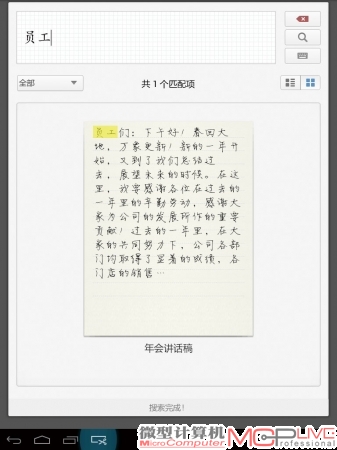 员工
全部
共 1 个匹配项
员工们：下午好！春回大
地，万象更新！新的一年开
始，又到了我们总结过
去，展望未来的时候。在这
里，我要感谢各位在过去的
一年里的辛勤劳动，感谢大
家为公司的发展所作的重要
贡献！过去的一年里，在大
家的共同努力下，公司各部
门均取得了显著的成绩，各
门店的销售…
年会讲话稿
搜索完成！
微型计算机
MicroComputer
MCPLIVE
Professional